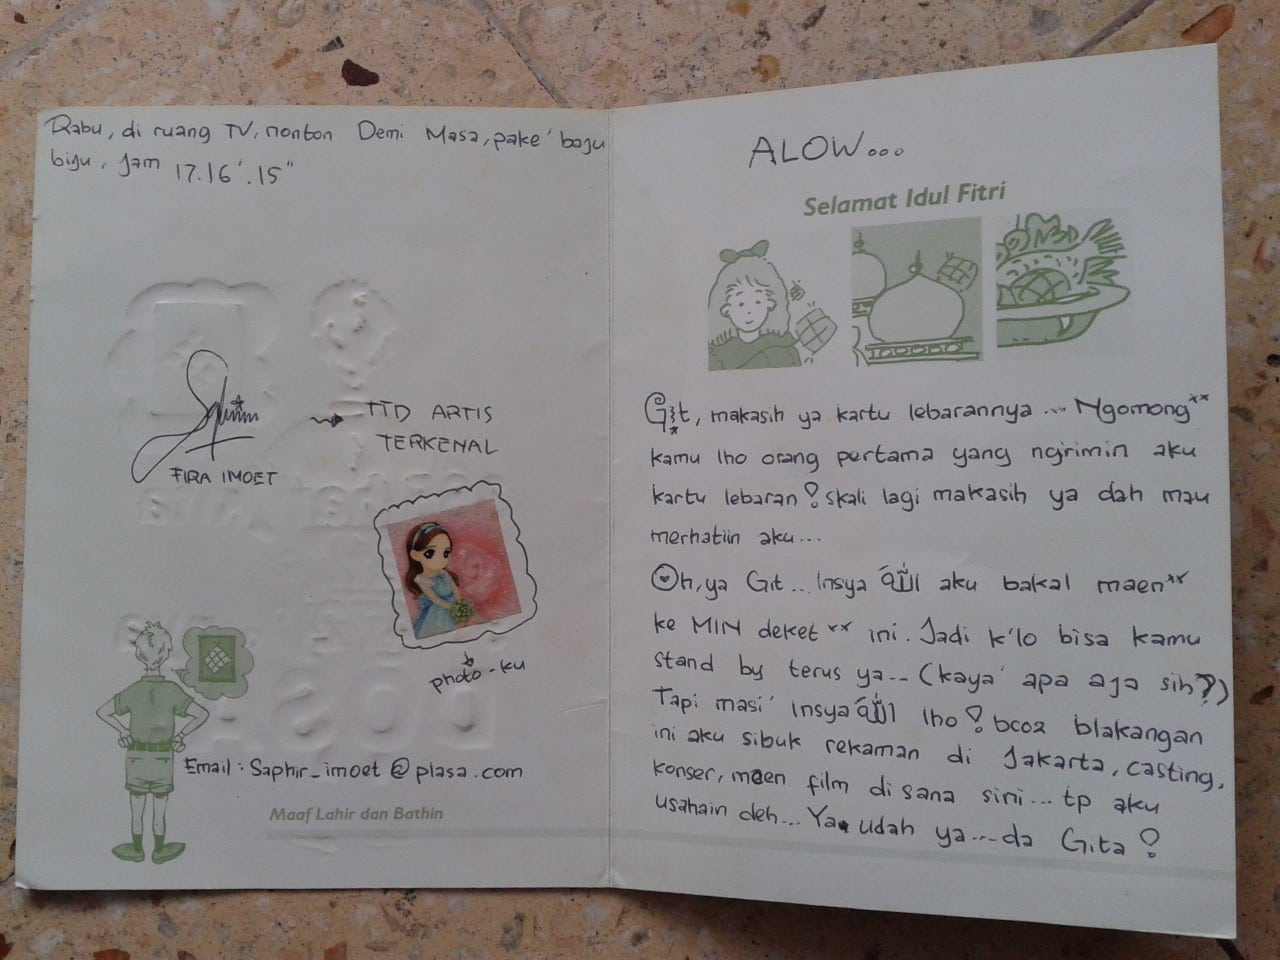 Rabu, di ruang TV, nonton Demi Masa, pake' baju
biju, Jam 17.16'.15"
TTD ARTIS
TERKENAL
FIRA IMOET
photo-ku
Email : Saphir_imoet@plasa.com
Maaf Lahir dan Bathin
ALOW...
Selamat Idul Fitri
Git, makasih ya kartu lebarannya ... Ngomong××
kamu lho orang pertama yang ngirimin aku
kartu lebaran! Skali lagi makasih ya dah mau
merhatiin aku...
Oh, ya Git... Insya الله aku bakal maen××
ke MIN deket×× ini. Jadi k'lo bisa kamu
stand by terus ya... (kaya' apa aja sih?)
Tapi masi' Insya الله lho! bcoz blakangan
ini aku sibuk rekaman di Jakarta, casting,
konser, maen film di sana sini... tp aku
usahain deh... Ya udah ya...da Gita!